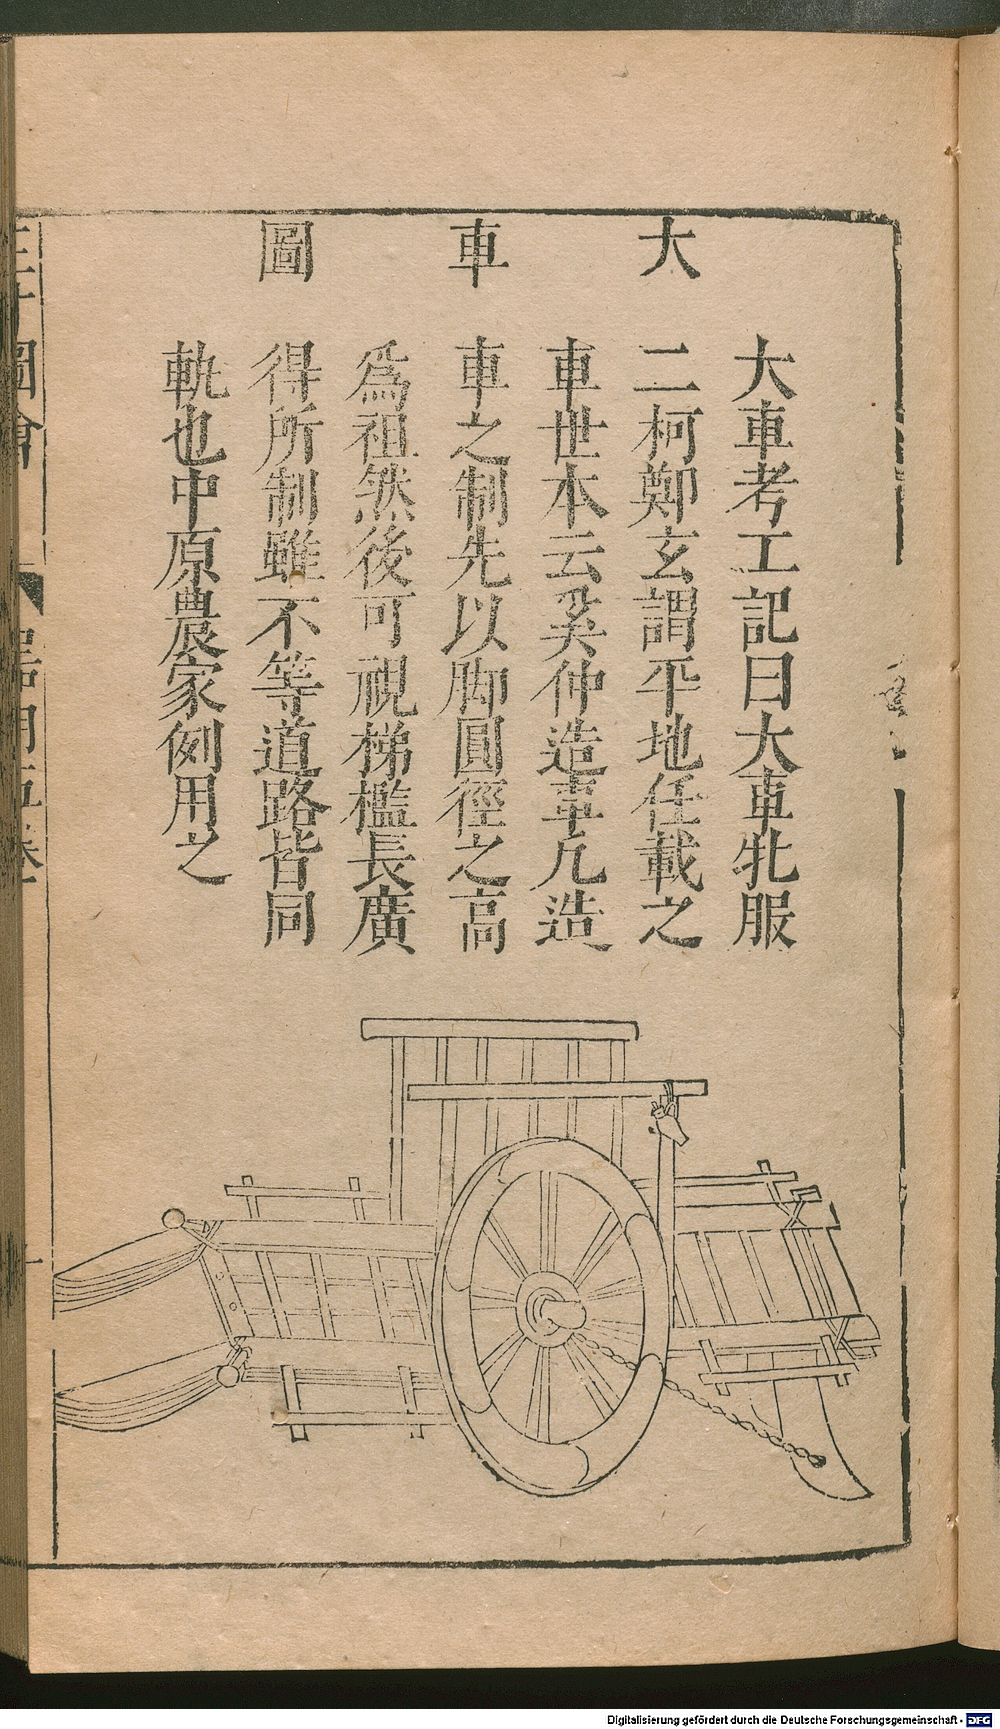 大車圖
大車考工記曰大車牝服
二柯鄭玄謂平地任載之
車世本云奚仲造車凡造
車之制先以脚圓徑之高
爲祖然後可視梯檻長廣
得所制雖不等道路皆同
軌也中原農家例用之
圖會
Digitalisierung gefördert durch die Deutsche Forschungsgemeinschaft - DFG